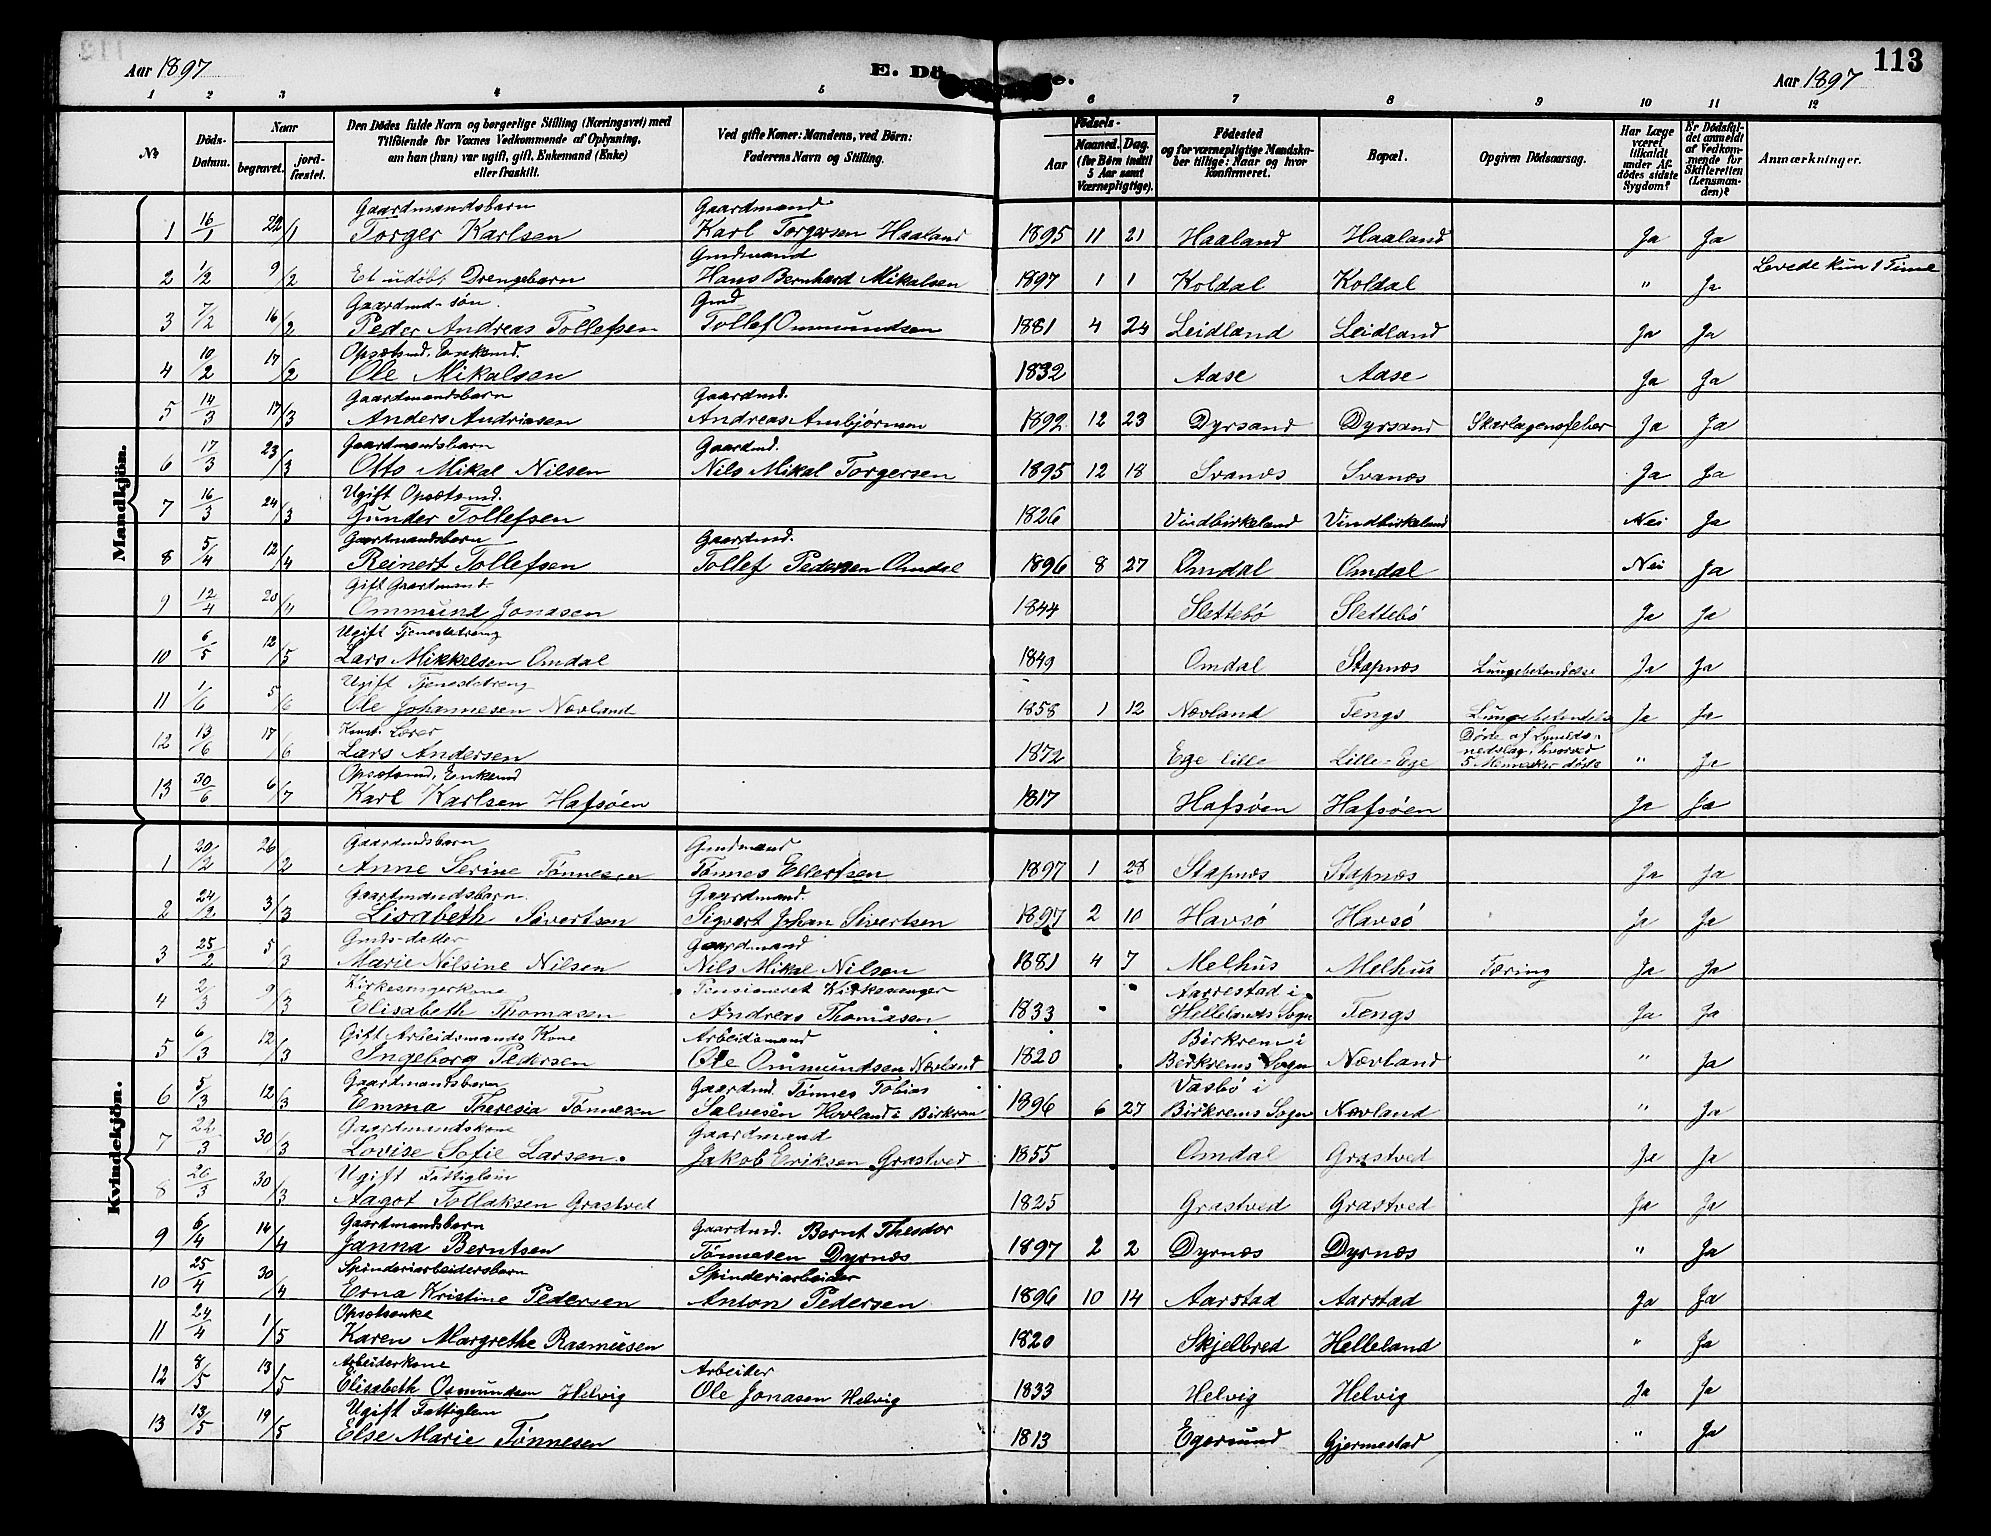 113
Aar 1897
E. Dö
e.
Aar 1897
1 2 3 4 5 6 7 8 9 10 11 12
No
Döds-Datum.
Naar
begravet.
jord-fæstet.
Den Dödes fulde Navn og borgerlige Stilling (Næringsvei) med
Tilföiende for Voxnes Vedkommende af Oplysning,
om han (hun) var ugift, gift, Enkemand (Enke)
eller fraskilt.
Ved gifte Koner: Mandens, ved Börn:
Faderens Navn og Stilling.
Födsels-
Aar
Maaned. Dag.
(for Börn indtil
5 Aar samt
Værnepligtige).
Födested
og for værnepligtige Mandska-
ber tillige: Naar og hvor
konfirmeret.
Bopæl.
Opgiven Dödsaarsag.
Har Læge
været
tilkaldt
under Af-
dödes sidste
Sygdom?
Er Dödsfal-
det anmeldt
af Vedkom-
mende for
Skifteretten
(Lensman-
den)?
Anmærkninger.
Mandkjön.
Gaardmandsbarn Gaardmand
1 16/1 22/1 Torger Karlsen Karl Torgersen Haaland 1895 11 21 Haaland Haaland Ja Ja
Gmdmand
2 1/2 9/2 Et udöbt Drengebarn Hans Bernhard Mikalsen 1897 1 1 Koldal Koldal " Ja Levede kun 1 Time
Gaardmd-søn Gmd
3 7/2 16/2 Peder Andreas Tollefsen Tollef Ommundsen 1881 4 24 Leidland Leidland Ja Ja
Opsætsmd. Enkemd.
4 10/2 17/2 Ole Mikalsen 1832 Aase Aase Ja Ja
Gaardmandsbarn Gaardmd.
5 14/3 17/3 Anders Andriasen Andreas Ambjørnsen 1892 12 23 Dyrsand Dyrsand Skarlagensfeber Ja Ja
Gaardmandsbarn Gaardmd.
6 17/3 23/3 Otto Mikal Nilsen Nils Mikal Torgersen 1895 12 18 Svanæs Svanæs Ja Ja
Ugift Opsætsmd.
7 16/3 24/3 Gunder Tollefsen 1826 Vindbirkeland Vindbirkeland Nei Ja
Gaardmandsbarn Gaardmd.
8 5/4 12/4 Reinert Tollefsen Tollef Pedersen Omdal 1896 8 27 Omdal Omdal Nei Ja
Gift Gaardmand.
9 12/4 20/4 Ommund Jonasen 1844 Slettebø Slettebø Ja Ja
Ugift Tjenestetreng
10 6/5 12/5 Lars Mikkelsen Omdal 1849 Omdal Stapnæs Lungebetendelse Ja Ja
Ugift Tjenestetreng
11 1/6 5/6 Ole Johannesen Nævland 1858 1 12 Nævland Tengs Lungebetendels Ja Ja
Lærer
12 13/6 17/6 Lars Andersen 1872 Ege lille Lille-Ege Døde af Lynilds-
nedslag, hvorved
5 Mennesker døde " Ja
Opsætsmd, Enkemd
13 30/6 6/7 Karl Karlsen Hafsøen 1817 Hafsøen Hafsøen Ja Ja
Kvindekjön.
Gaardmdsbarn Gmdmand
1 20/2 26/2 Anne Serine Tønnesen Tønnes Ellertsen 1897 1 28 Stapnæs Stapnæs Ja Ja
Gaardmandsbarn. Gaardmand.
2 24/2 3/3 Lisabeth Sivertsen Sigvart Johan Sivertsen 1897 2 10 Havsø Havsø Ja Ja
Gmds-datter Gaardmand
3 25/2 5/3 Marie Nilsine Nilsen Nils Mikal Nilsen 1881 4 7 Melhus Melhus Tæring Ja Ja
Kirkesangerkone Pensioneret Kirkesanger Aarrestad i
4 2/3 9/3 Elisabeth Thomasen Andreas Thomasen 1833 Hellelands Sogn Tengs Ja Ja
Gift Arbeidsmands Kone Arbeidsmand Birkrem i
5 6/3 12/3 Ingeborg Pedersen Ole Ommundsen Nævland 1820 Berkrems Sogn Nævland " Ja
Gaardmandsbarn Gaardmd. Tønnes Tobias Vasbø i
6 5/3 12/3 Emma Theresia Tønnesen Salvesen Hovland i Birkrem 1896 6 27 Birkrems Sogn Nævland " Ja
Gaardmandskone Gaardmand
7 22/3 30/3 Lovise Sofie Larsen. Jakob Eriksen Grastved 1855 Omdal Grastved Ja Ja
Ugift Fattiglem
8 26/3 30/3 Aagot Tollaksen Grastved 1825 Grastved Grastved Ja Ja
Gaardmandsbarn Gaardmd. Bernt Theodor
9 6/4 14/4 Janna Berntsen Tønnesen Dyrnæs 1897 2 2 Dyrnæs Dyrnæs " Ja
Spinderiarbeidersbarn Spinderiarbeider
10 25/4 30/4 Erna Kristine Pedersen Anton Pedersen. 1896 10 14 Aarstad Aarstad Ja Ja
Opsætsenke
11 24/4 1/5 Karen Margrethe Rasmusen 1820 Skjelbred Helleland " Ja
Arbeiderkone Arbeider
12 8/5 13/5 Elisabeth Osmundsen Helvig Ole Jonasen Helvig 1833 Helvig Helvig Ja Ja
Ugift Fattiglem
13 13/5 19/5 Else Marie Tønnesen 1813 Egersund Gjermestad " Ja